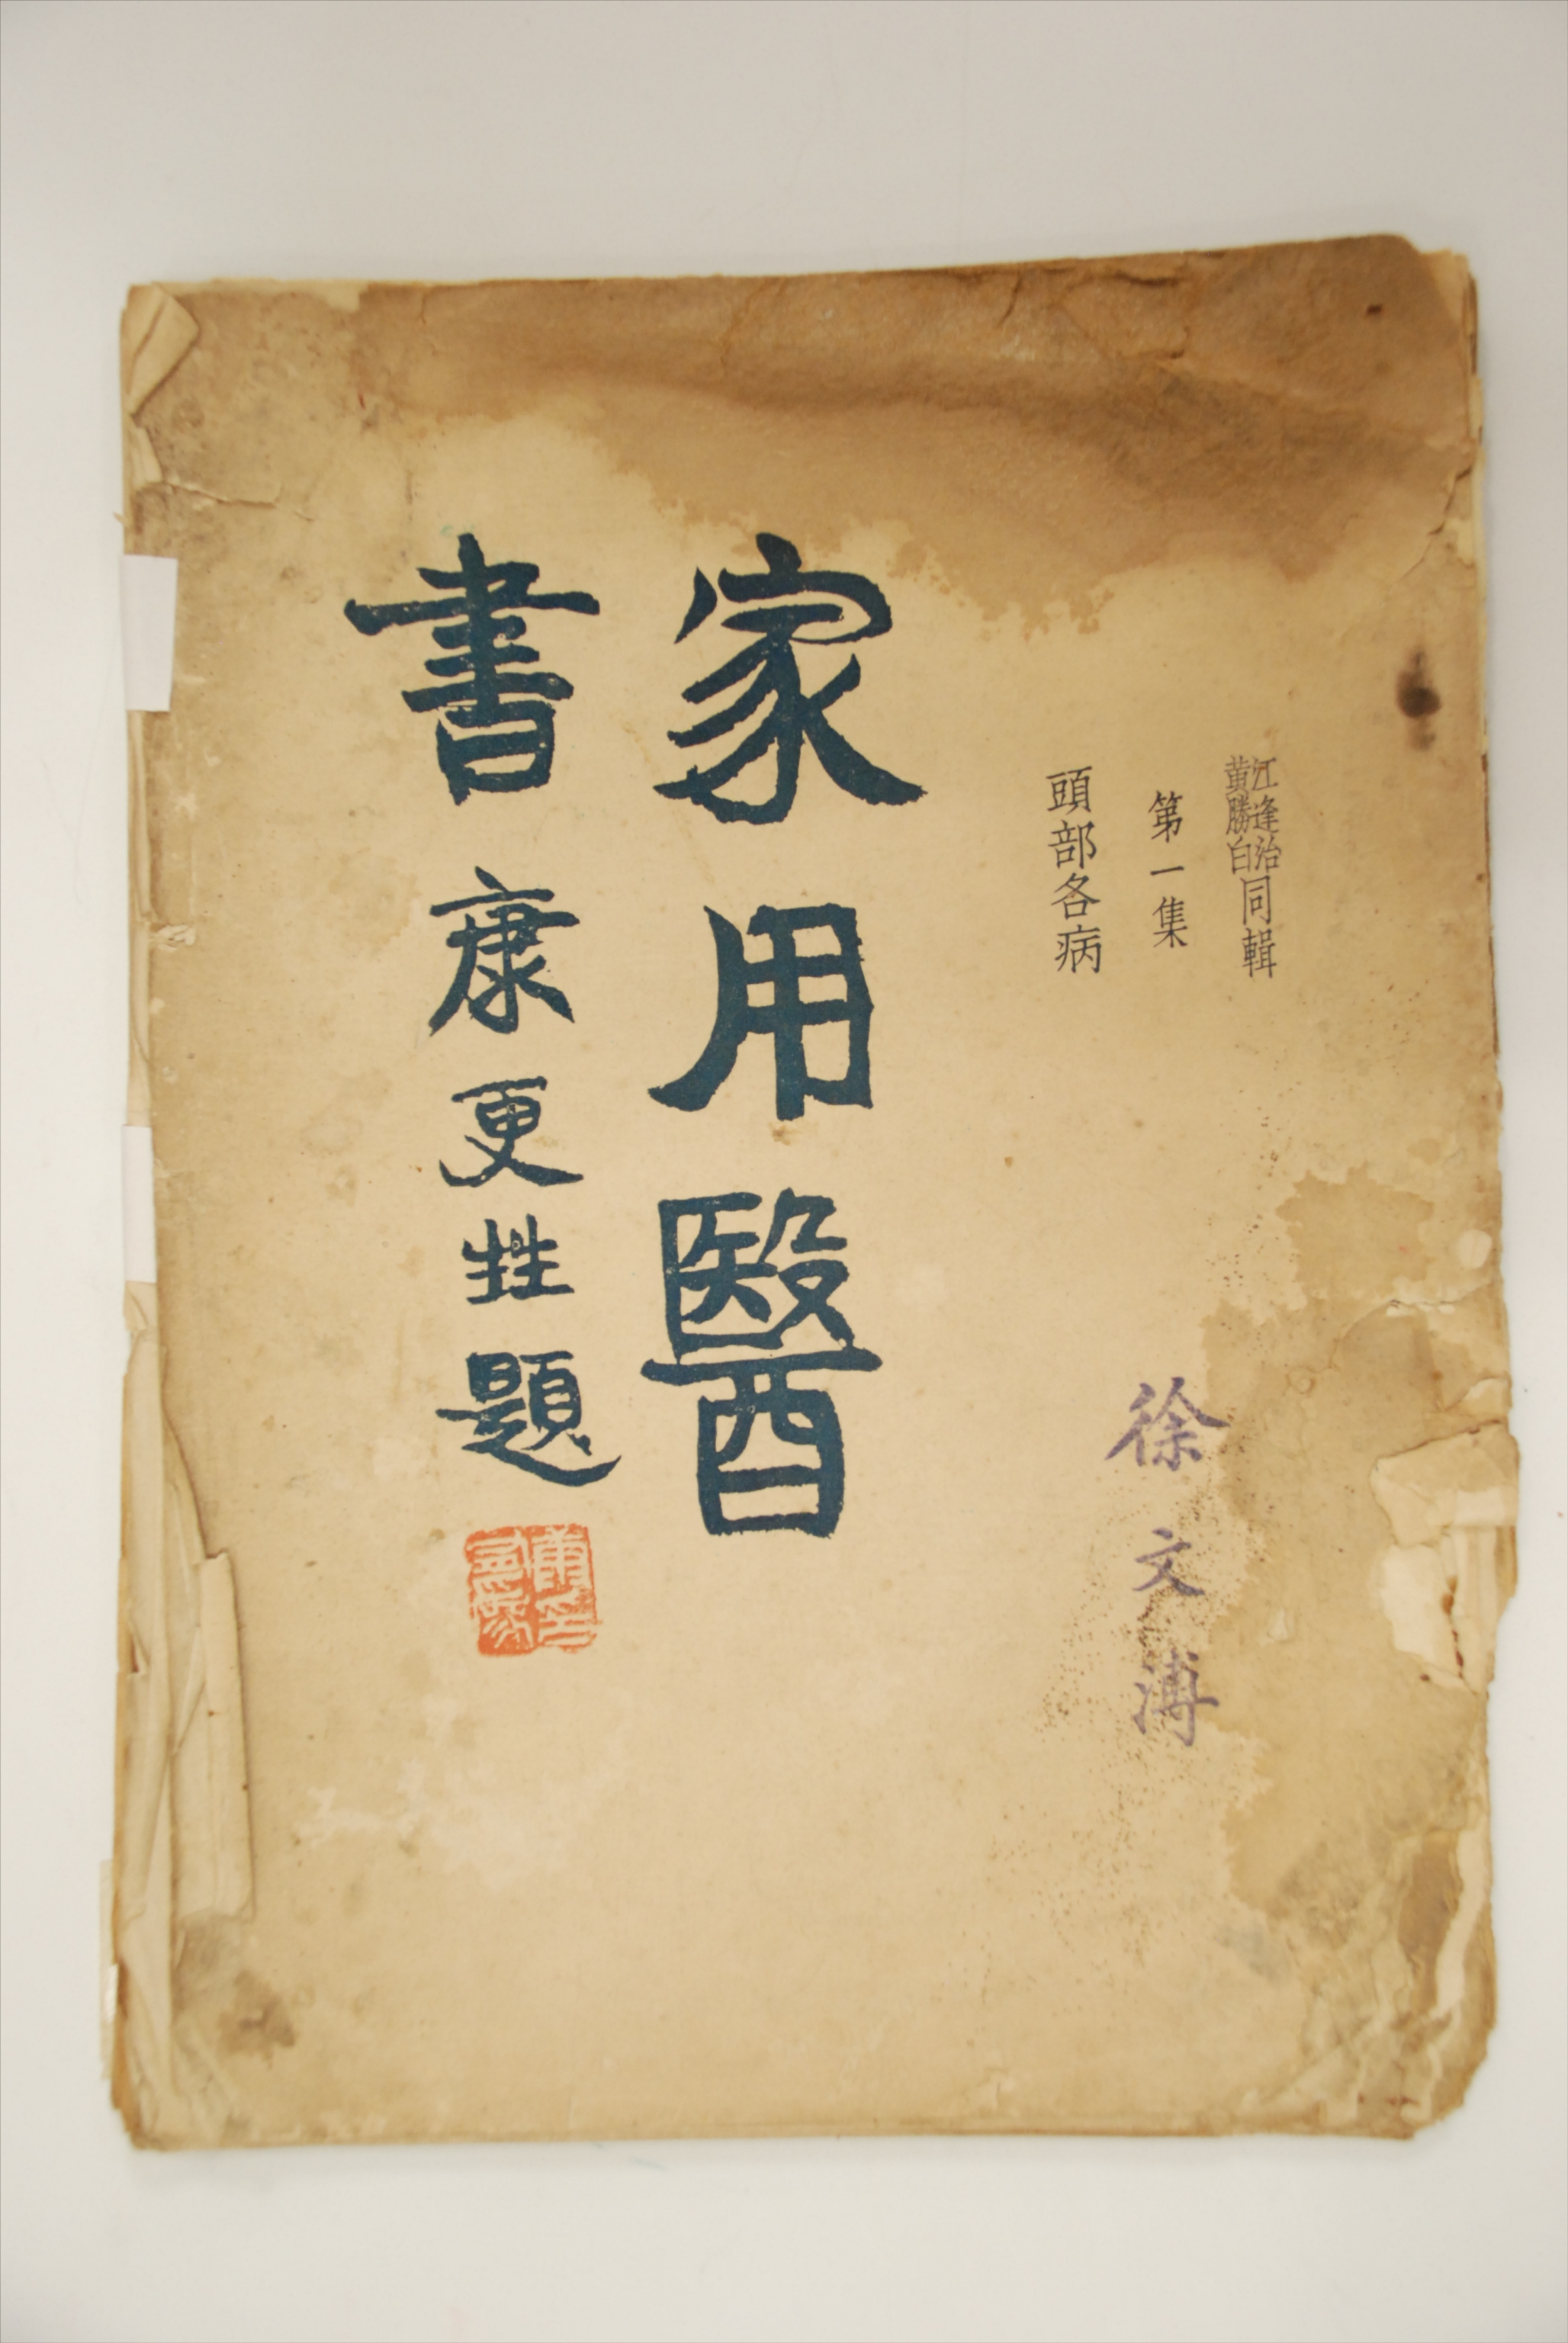 江逢治
黄勝白
同輯
第一集
頭部各病
徐文溥
家用醫
書 康更甡題